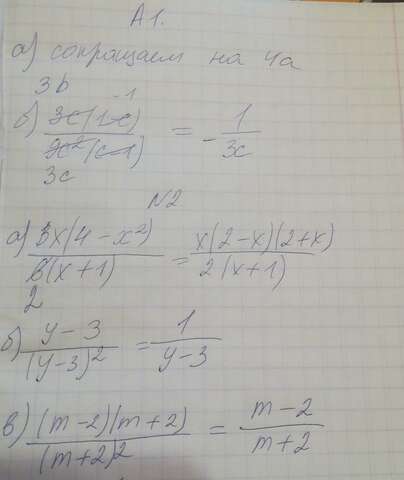 А1.
а) сокращаем на 4а
3b
б) 3c(1-c) -1 / 9c²(c-1) 3c = - 1/3c
N2
а) 3x(4-x²) / 6(x+1) 2 = x(2-x)(2+x) / 2(x+1)
б) y-3 / (y-3)² = 1 / y-3
в) (m-2)(m+2) / (m+2)² = m-2 / m+2